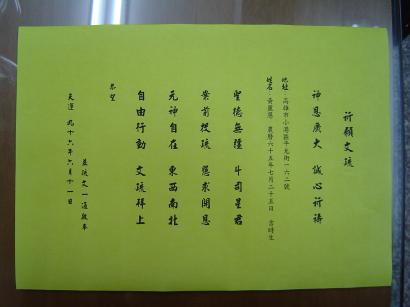 祈願文疏
神恩廣大 誠心祈禱
地址:高雄市小港區平光街一六二號
姓名:黃麗慈 農曆六十五年七月二十五日 吉時生
聖德無疆 斗司星君
案前投疏 懇求開恩
元神自在 東西南北
自由行動 文疏拜上
恭望
並疏文一通啟奉
天運 九十六年六月十一日